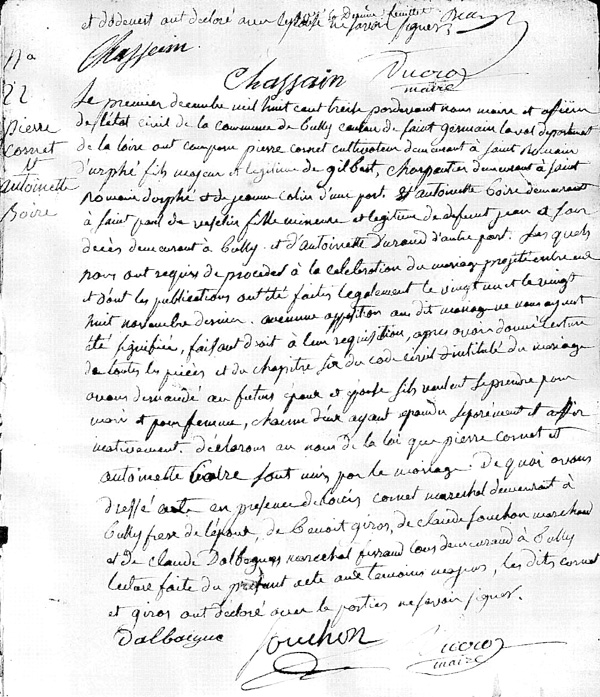 et d'odenert ont déclaré avec ne savoir signer
Chassain
Chassain Ducros
maire
N°
22
pierre
cornet
et
antoinette
Boire
Le premier decembre mil huit cent treize pardevant nous maire et officier
de l'état civil de la commune de Bully canton de saint germain laval departement
de la loire ont comparu pierre cornet cultivateur demeurant à saint Romain
d'urphé fils majeur et legitime de gilbert, charpentier demeurant à saint
Romain d'orphé et de jeanne d'une part. Et antoinette Boire demeurant
à saint paul de veselin fille mineure et legitime de defunt jean à son
décès demeurant à Bully. et d'antoinette Durand d'autre part. Les quels
nous ont requis de proceder à la celebration du mariage projetté entre eux
et dont les publications ont été faites legalement le vingt un et le vingt
huit novembre dernier. aucune opposition au dit mariage ne nous ayant
été signifiée, faisant droit à leur requisition, apres avoir donné lecture
de toutes les pieces et du chapitre six du code civil intitulé du mariage
avons demandé au futur epoux et epouse s'ils veulent se prendre pour
mari et pour femme, chacun d'eux ayant repondu separément et affir
mativement. déclarons au nom de la loi que pierre cornet et
antoinette Boire sont unis par le mariage. De quoi avons
dressé acte en presence de cornet marechal demeurant à
Bully frere de l'epoux, de Benoit giros, de claude fouchon marchand
et de claude Dalbegue marechal ferrand tous demeurand à Bully
lecture faite du présent acte aux temoins majeurs, les dits cornet
et giros ont déclaré avec les parties ne savoir signer.
Dalbaigue fouchon Ducros
maire